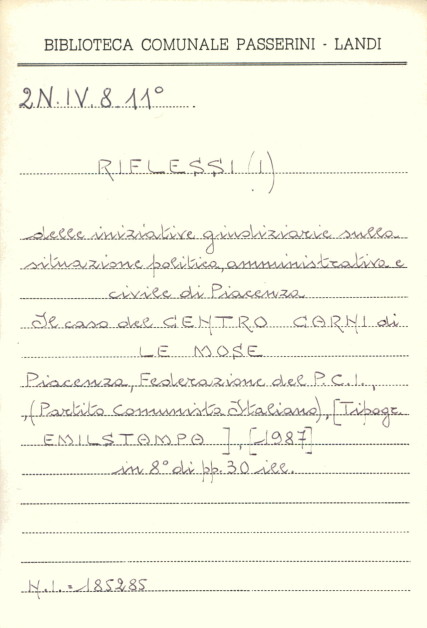 BIBLIOTECA COMUNALE PASSERINI - LANDI
2N.IV.8 11°
RIFLESSI (I)
delle iniziative giudiziarie sulla
situazione politica, amministrativa e
civile di Piacenza
Il caso del CENTRO CARNI di
LE MOSE
Piacenza, Federazione del P.C.I.,
,(Partito Comunista Italiano), [Tipogr.
EMILSTAMPA ], [1987]
in 8° di pp. 30 ill.
N.I. = 185285